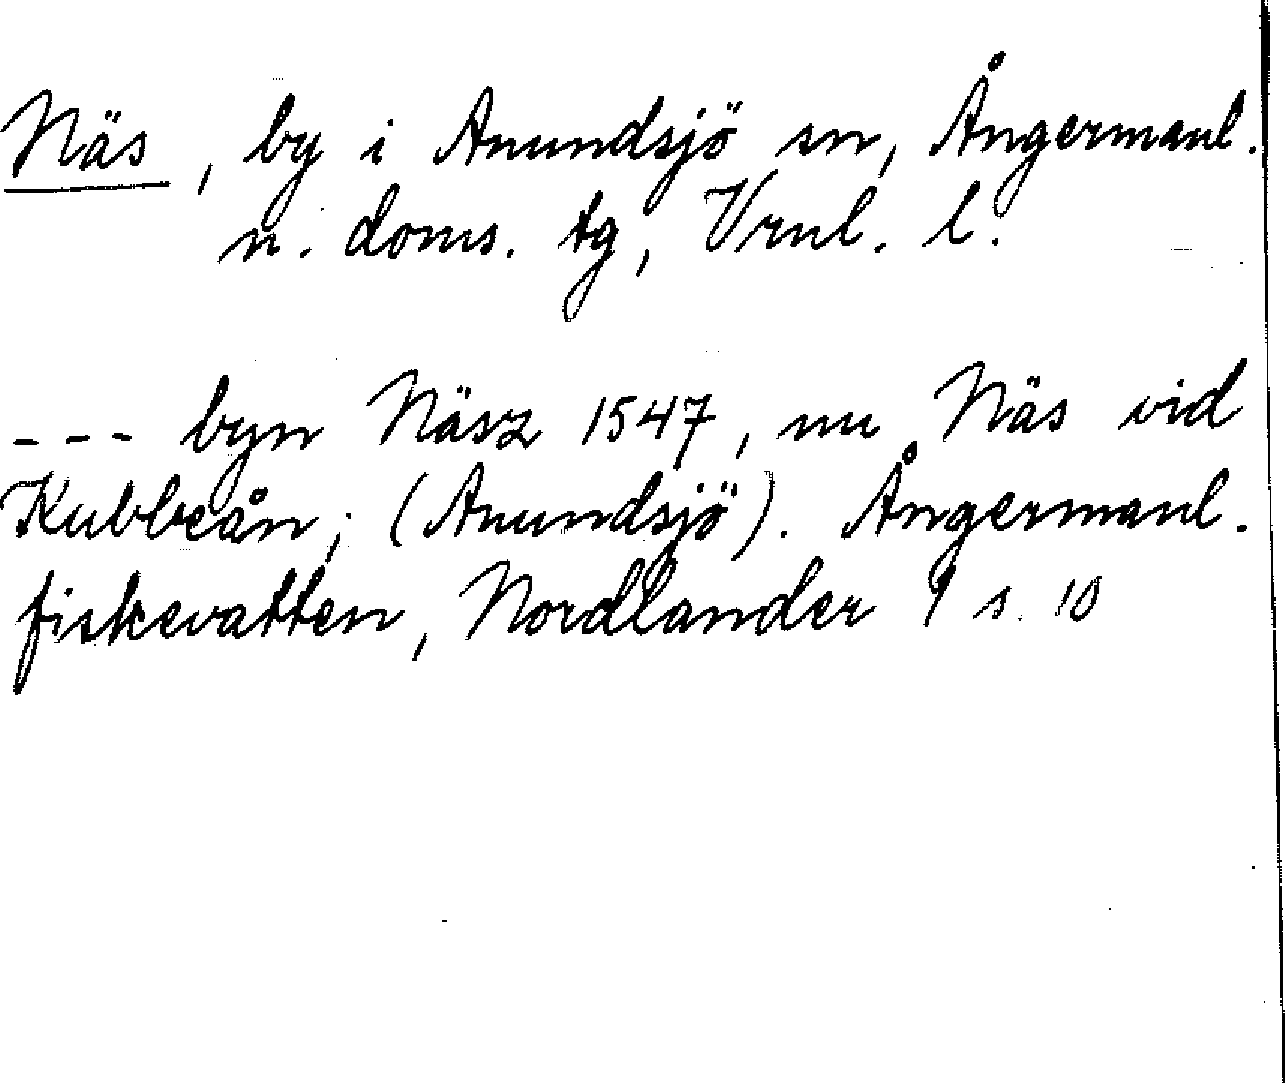 Näs, by i Anundsjö sn, Ångermanl.
n. doms. tg, Vrnl. l.
--- byn Näsz 1547, nu Näs vid
Kubbeån; (Anundsjö). Ångermanl.
fiskevatten, Nordlander s. 10